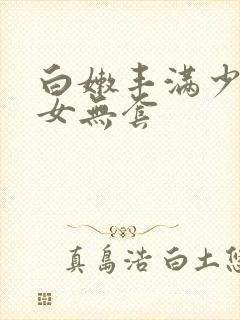 白嫩丰满少
女無套
真島浩 白土悠